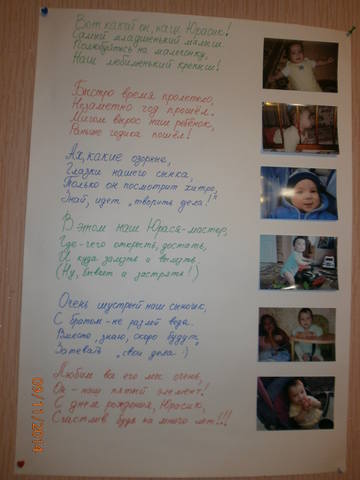 Вот какой он, наш Юрасик!
Самый младшенький малыш
Полюбуйтесь на мальчонку,
Наш любименький крепыш!
Быстро время пролетело,
Незаметно год прошёл.
Мигом вырос наш ребёнок,
Раньше годика пошёл!
Ах, какие озорные,
Глазки нашего сынка,
Только он посмотрит хитро,
Знай, идёт "творить дела!"
В этом наш Юрася-мастер,
Где-чего открыть, достать,
И куда залезть и вылезть.
(Ну, бывает и застрять!)
Очень шустрый наш сыночек,
С братом - не разлей вода.
Вместе, знаю, скоро будут
Затевать "свои дела :)
Любим ва его мы очень,
Он - наш пятый элемент!
С днём рождения, Юрасик,
Счастлив будь на много лет!!!
03/11/2014